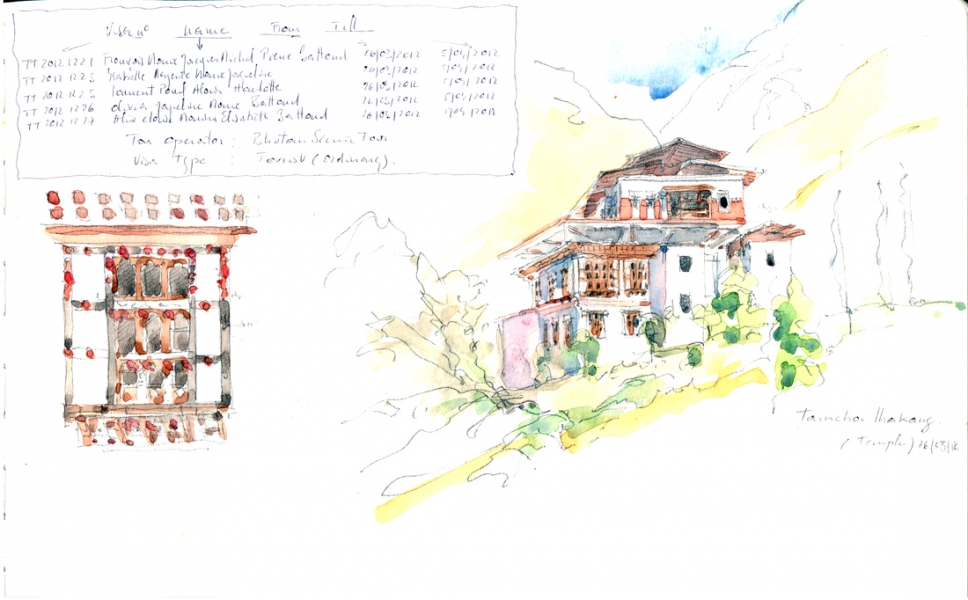 Visa n° Name From Till
TT 2012 1221 François Marie Jacques Michel Pierre Battaud 26/03/2012 5/04/2012
TT 2012 1223 Isabelle Marie Jacqueline 26/03/2012 5/04/2012
TT 2012 1225 Laurent Paul Alois 26/03/2012 5/04/2012
TT 2012 1226 Olivia Jaqueline Marie Battaud 26/03/2012 5/04/2012
TT 2012 1227 Elisabeth Battaud 26/03/2012 5/04/2012
Tour operator : Bhutan Scenic Tour
Visa Type : Tourist (Ordinary).
Tamchou Lhakang.
(Temple) 26/03/12